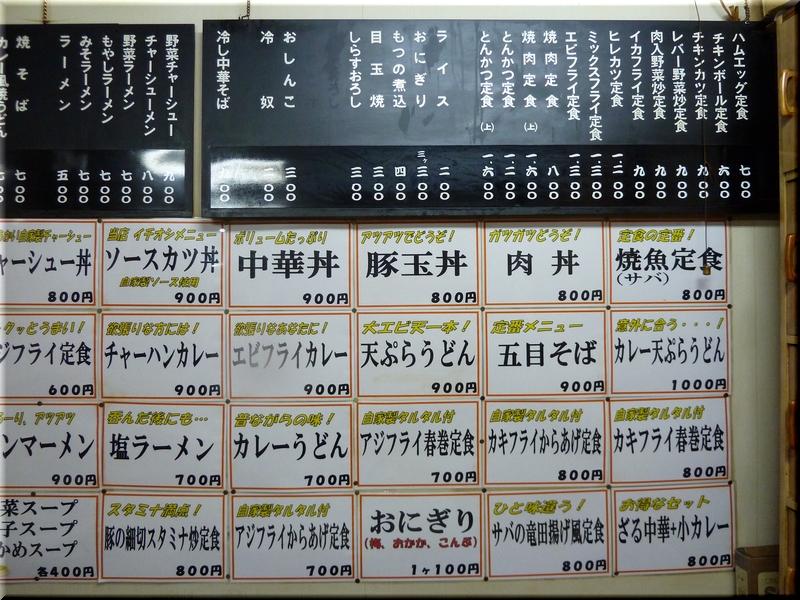 ハムエッグ定食 七〇〇
チキンボール定食 六〇〇
チキンカツ定食 九〇〇
レバー野菜炒定食 九〇〇
肉入野菜炒定食 九〇〇
イカフライ定食 九〇〇
ヒレカツ定食 一、二〇〇
ミックスフライ定食 一、三〇〇
エビフライ定食 一、三〇〇
焼肉定食 八〇〇
焼肉定食(上) 一、六〇〇
とんかつ定食 一、二〇〇
とんかつ定食(上) 一、六〇〇
ライス 二〇〇
おにぎり 三ヶ三〇〇
もつの煮込 四〇〇
目玉焼 三〇〇
しらすおろし 三〇〇
おしんこ 三〇〇
冷奴 〇〇
冷し中華そば 〇〇
野菜チャーシュー 九〇〇
チャーシューメン 八〇〇
野菜ラーメン 七〇〇
もやしラーメン 七〇〇
みそラーメン 七〇〇
ラーメン 五〇〇
焼そば 七〇〇
自家製チャーシュー
ャーシュー丼
800円
当店 イチオシメニュー
ソースカツ丼
自家製ソース使用
900円
ボリュームたっぷり
中華丼
900円
アツアツでどうぞ!
豚玉丼
800円
ガツガツどうぞ!
肉丼
800円
定食の定番!
焼魚定食
(サバ)
800円
クッとうまい!
ジフライ定食
600円
欲張りな方には!
チャーハンカレー
900円
欲張りなあなたに!
エビフライカレー
900円
大エビ天一本!
天ぷらうどん
900円
定番メニュー
五目そば
900円
意外に合う・・・!
カレー天ぷらうどん
1000円
ーり、アツアツ
ンマーメン
900円
呑んだ後にも…
塩ラーメン
700円
昔ながらの味!
カレーうどん
700円
自家製タルタル付
アジフライ春巻定食
700円
自家製タルタル付
カキフライからあげ定食
800円
自家製タルタル付
カキフライ春巻定食
800円
菜スープ
子スープ
かめスープ
各400円
スタミナ満点!
豚の細切スタミナ炒定食
800円
自家製タルタル付
アジフライからあげ定食
700円
おにぎり
(梅、おかか、こんぶ)
1ヶ100円
ひと味違う!
サバの竜田揚げ風定食
800円
お得なセット
ざる中華+小カレー
800円